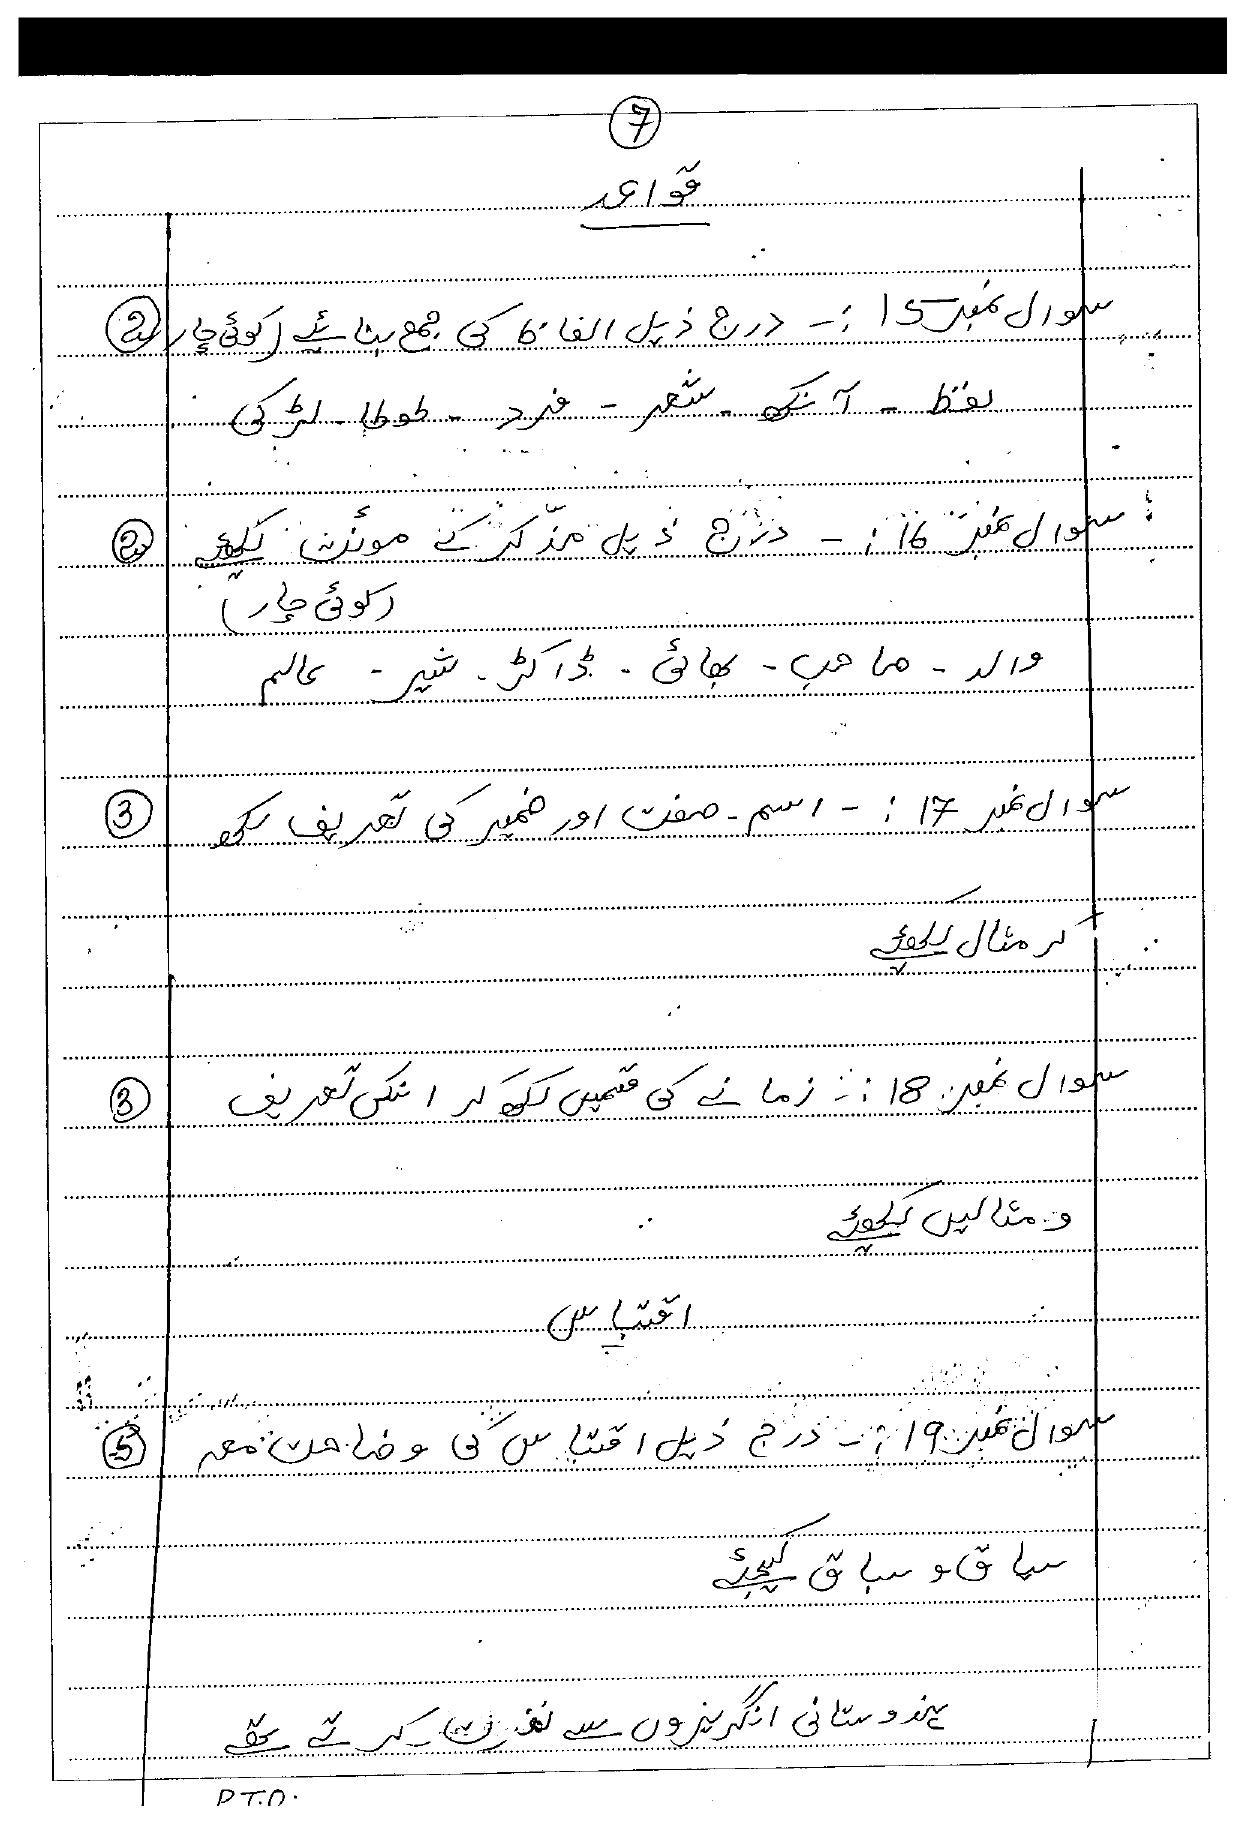 7
قواعد
سوال نمبر 15 :- درج ذیل الفاظ کی جمع بنائیے (کوئی چار) 2
لفظ - آنکھ - شعر - فرد - طوطا - لڑکی
سوال نمبر 16 :- درج ذیل مذکر کے موئنث لکھئے 2
(کوئی چار)
والد - صاحب - بھائی - ڈاکٹر - شیر - عالم
سوال نمبر 17 :- اسم - صفت اور ضمیر کی تعریف لکھ 3
کر مثال لکھئے
سوال نمبر 18 :- زمانے کی قسمیں لکھ کر انکی تعریف 3
و مثالیں لکھئے
اقتباس
سوال نمبر 19 :- درج ذیل اقتباس کی وضاحت معہ 5
سیاق و سباق کیجئے
ہندوستانی انگریزوں سے نفرت کرتے تھے
P.T.O.